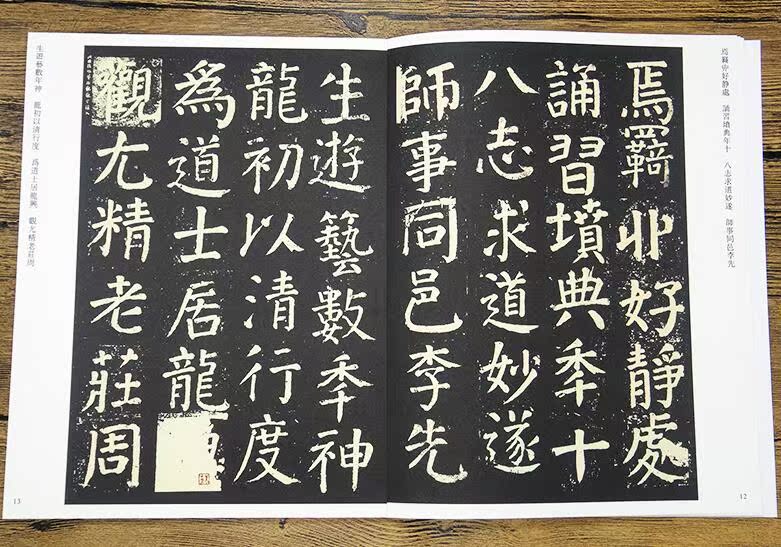 焉羈丱好靜處　誦習墳典年十　八志求道妙遂　師事同邑李先
焉羈丱好靜處
誦習墳典秊十
八志求道妙遂
師事同邑李先
12
生遊藝數秊神
龍初以清行度
爲道士居龍
觀尤精老莊周
生遊藝數年神　龍初以清行度　爲道士居龍興　觀尤精老莊周
13